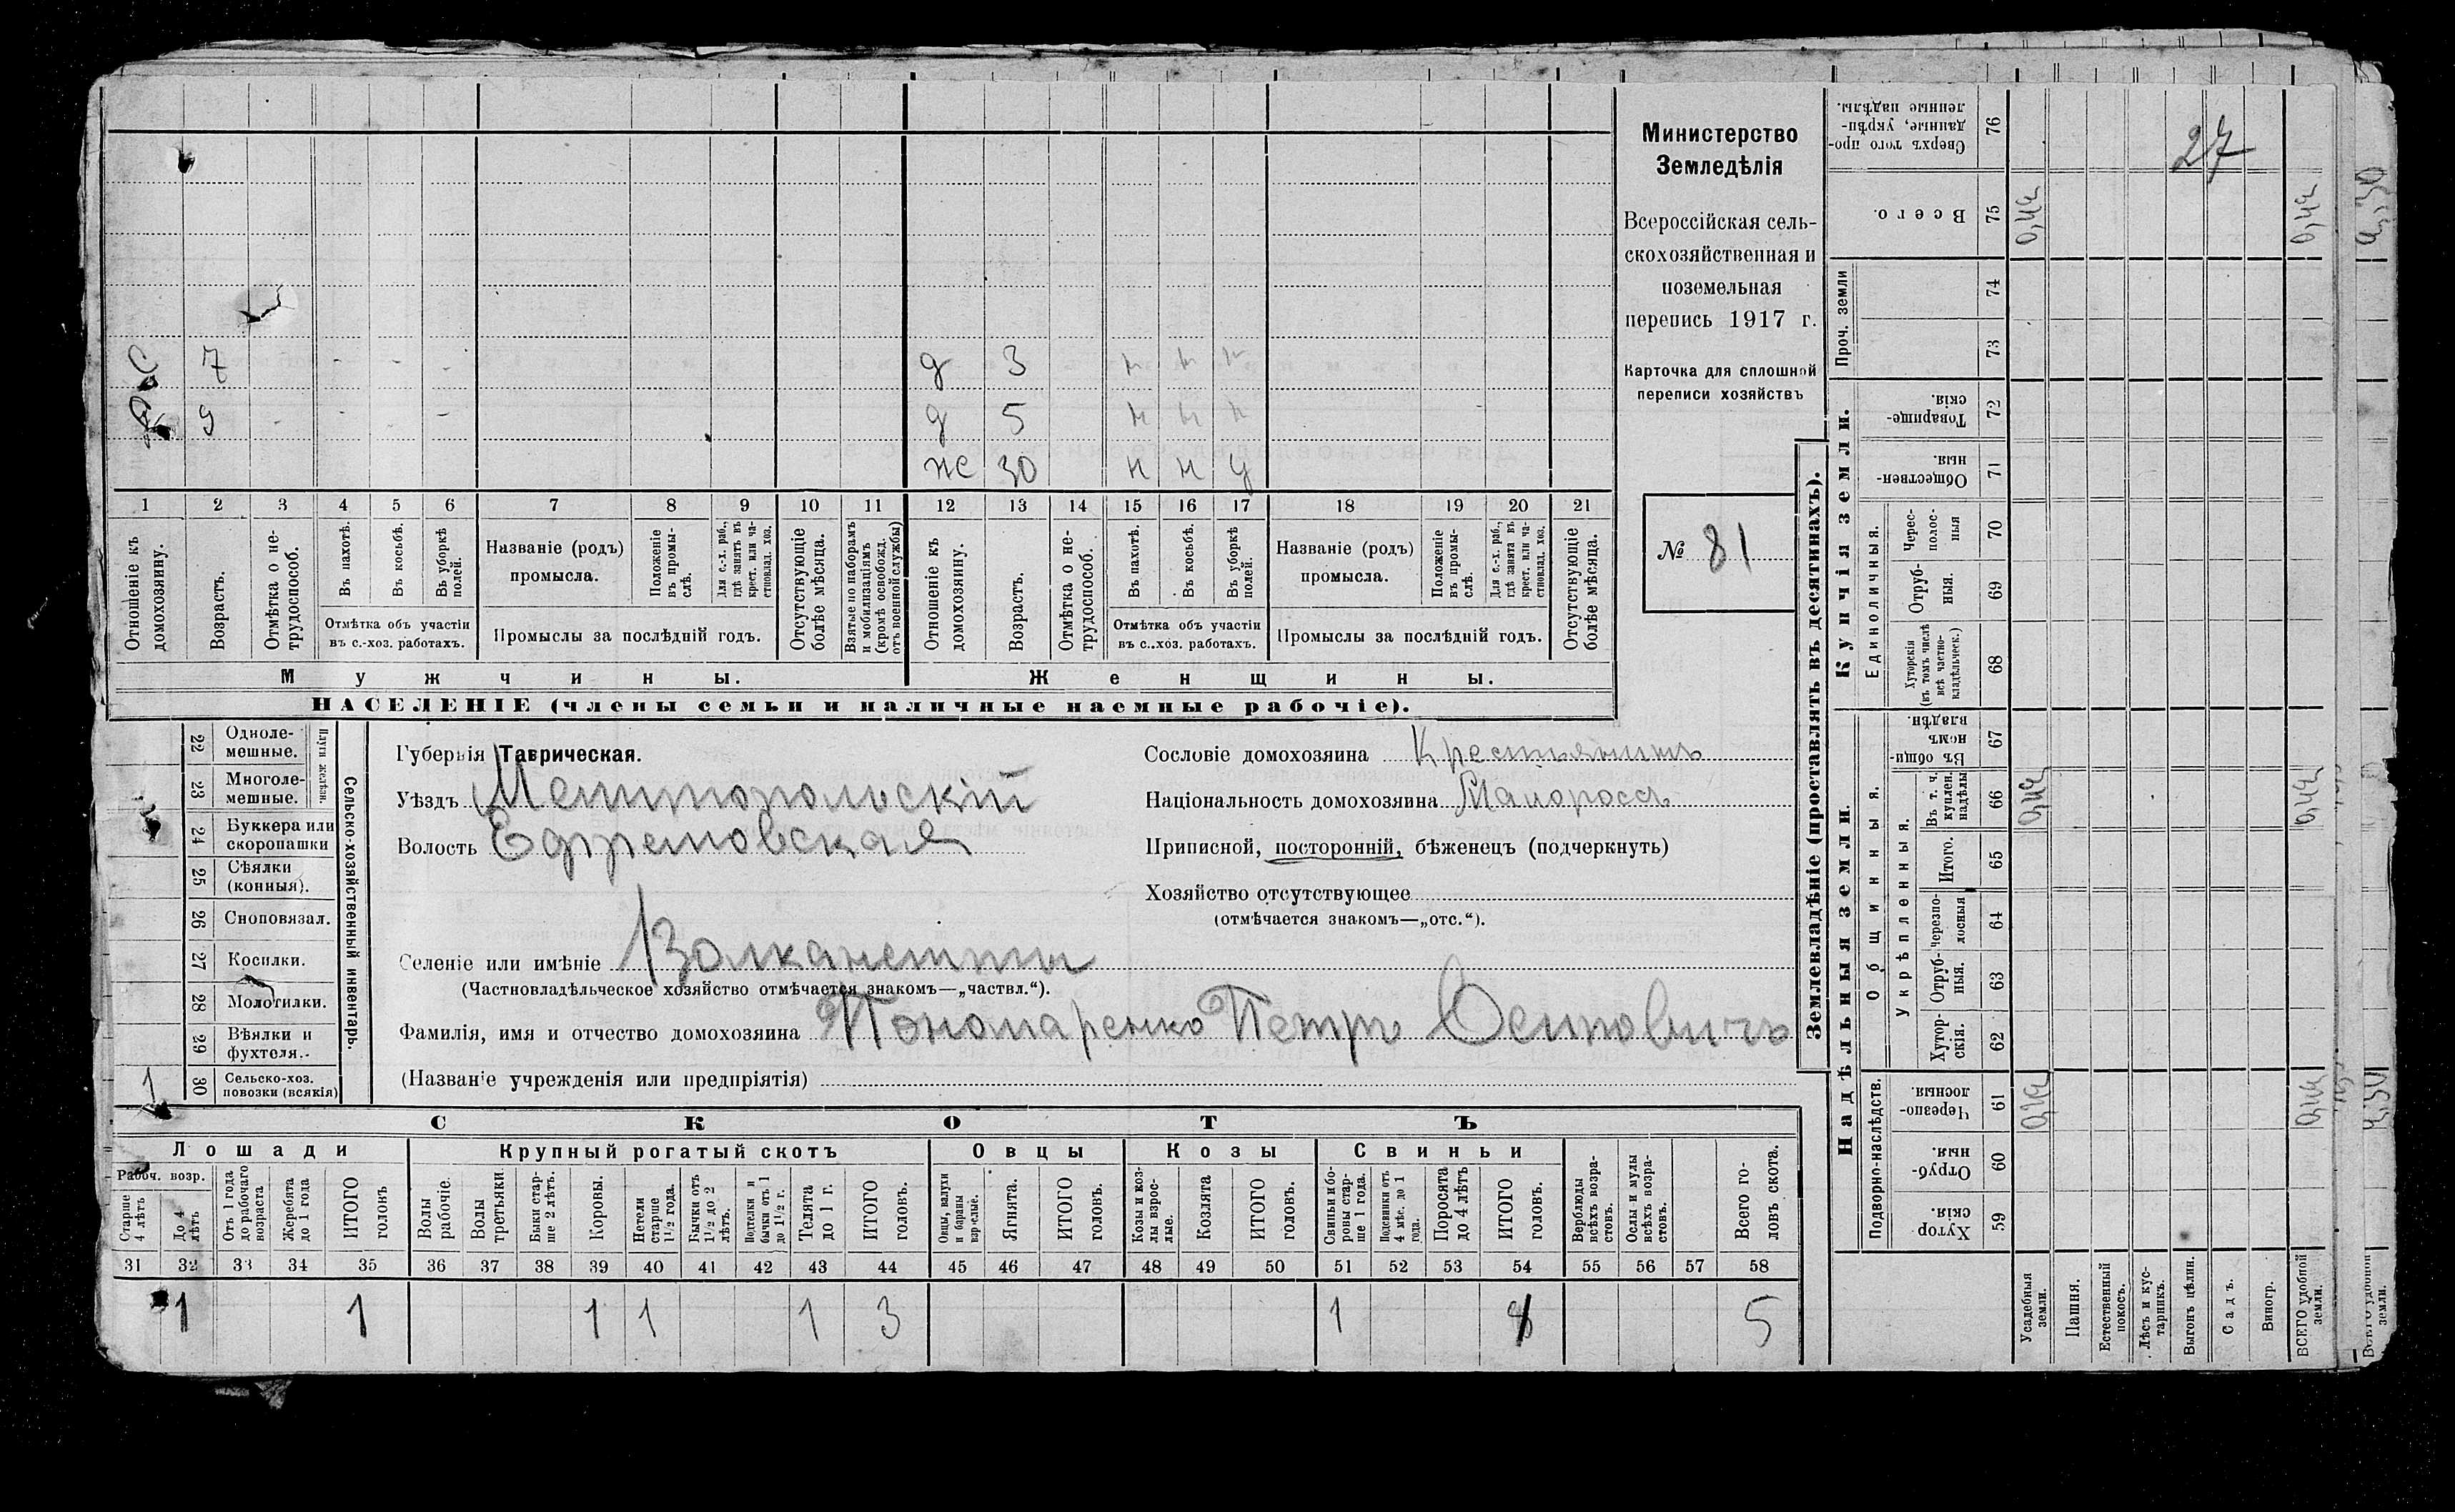 27
Министерство
Земледѣлія
Всероссійская сель-
скохозяйственная и
поземельная
перепись 1917 г.
Карточка для сплошной
переписи хозяйствъ
№ 81
С 7 - - - д 3 н н н
9 - - - - д 5 н н н
ж 30 н н у
1 2 3 4 5 6 7 8 9 10 11 12 13 14 15 16 17 18 19 20 21
Отношеніе къ домохозяину.
Возрастъ.
Отмѣтка о не-трудоспособ.
Въ пахотѣ.
Въ косьбѣ.
Въ уборкѣ полей.
Отмѣтка объ участіи
въ с.-хоз. работахъ.
Названіе (родъ)
промысла.
Положеніе въ промы-слѣ.
Для с.-х. раб., гдѣ занятъ въ крест. или ча-стновлад. хоз.
Промыслы за послѣдній годъ.
Отсутствующіе болѣе мѣсяца.
Взятые по наборамъ и мобилизаціямъ (кромѣ освобожд. отъ военной службы)
Отношеніе къ домохозяину.
Возрастъ.
Отмѣтка о не-трудоспособ.
Въ пахотѣ.
Въ косьбѣ.
Въ уборкѣ полей.
Отмѣтка объ участіи
въ с..хоз. работахъ.
Названіе (родъ)
промысла.
Положеніе въ промы-слѣ.
Для с.-х. раб., гдѣ занята въ крест. или ча-стновлад. хоз.
Промыслы за послѣдній годъ.
Отсутствующіе болѣе мѣсяца.
Мужчины.
Женщины.
НАСЕЛЕНІЕ (члены семьи и наличные наемные рабочіе).
Сельско-хозяйственный инвентарь.
Плуги желѣзн.
22 Одноле-мешные.
23 Многоле-мешные.
24 Буккера или скоропашки
25 Сѣялки (конныя).
26 Сноповязал.
27 Косилки.
28 Молотилки.
29 Вѣялки и фухтеля.
1 30 Сельско-хоз. повозки (всякія)
Губернія Таврическая.
Уѣздъ Мелитопольскій
Волость Ефремовская
Селеніе или имѣніе Волканешты
(Частновладѣльческое хозяйство отмѣчается знакомъ—„частвл.“).
Фамилія, имя и отчество домохозяина Пономаренко Петръ Осиповичъ
(Названіе учрежденія или предпріятія)
Сословіе домохозяина Крестьянинъ
Національность домохозяина Малороссъ
Приписной, посторонній, бѣженецъ (подчеркнуть)
Хозяйство отсутствующее
(отмѣчается знакомъ—„отс.“).
СКОТЪ
Лошади
Крупный рогатый скотъ
Овцы
Козы
Свиньи
Рабоч. возр.
Старше 4 лѣтъ
До 4 лѣтъ
Отъ 1 года до рабочаго возраста
Жеребята до 1 года
ИТОГО головъ
Волы рабочіе.
Волы третьяки.
Быки стар-ше 2 лѣтъ.
Коровы.
Нетели старше 1½ года.
Бычки отъ 1½ до 2 лѣтъ.
Подтелки и бычки отъ 1 до 1½ г.
Телята до 1 г.
ИТОГО головъ.
Овцы, валухи и бараны взрослые.
Ягнята.
ИТОГО головъ.
Козы и коз-лы взрос-лые.
Козлята
ИТОГО головъ.
Свиньи и бо-ровы стар-ше 1 года.
Подсвинки отъ 4 мѣс. до 1 года.
Поросята до 4 лѣтъ
ИТОГО головъ.
Верблюды всѣхъ возра-стовъ.
Ослы и мулы всѣхъ возра-стовъ.
Всего го-ловъ скота.
31 32 33 34 35 36 37 38 39 40 41 42 43 44 45 46 47 48 49 50 51 52 53 54 55 56 57 58
1 1 1 1 1 3 1 5
Землевладѣніе (проставлять въ десятинахъ).
Купчія земли.
Надѣльныя земли.
Сверхъ того про-данные, укрѣп-ленные надѣлы. 76
Всего. 75 0,44 0,44 4,30
Проч. земли 74 73
Товарище-скія. 72
Обществен-ныя. 71
Единоличныя.
Черес-полос-ныя 70
Отруб-ныя. 69
Хуторскія (въ томъ числѣ всѣ частно-владѣльческ.) 68
Общинныя.
Въ общи-номъ владѣн. 67
Укрѣпленныя.
Въ т. ч. куплен. надѣлы 66 0,44 0,44
Итого. 65
Черезпо-лосныя 64
Отруб-ныя. 63
Хутор-скія. 62
Подворно-наслѣдств.
Черезпо-лосныя 61 0,44 0,44
Отруб-ныя 60
Хутор-скія 59
Усадебныя земли.
Пашня.
Естественный покосъ.
Лѣсъ и кус-тарникъ.
Выгонъ цѣлин.
Садъ.
Виногр.
ВСЕГО удобной земли.